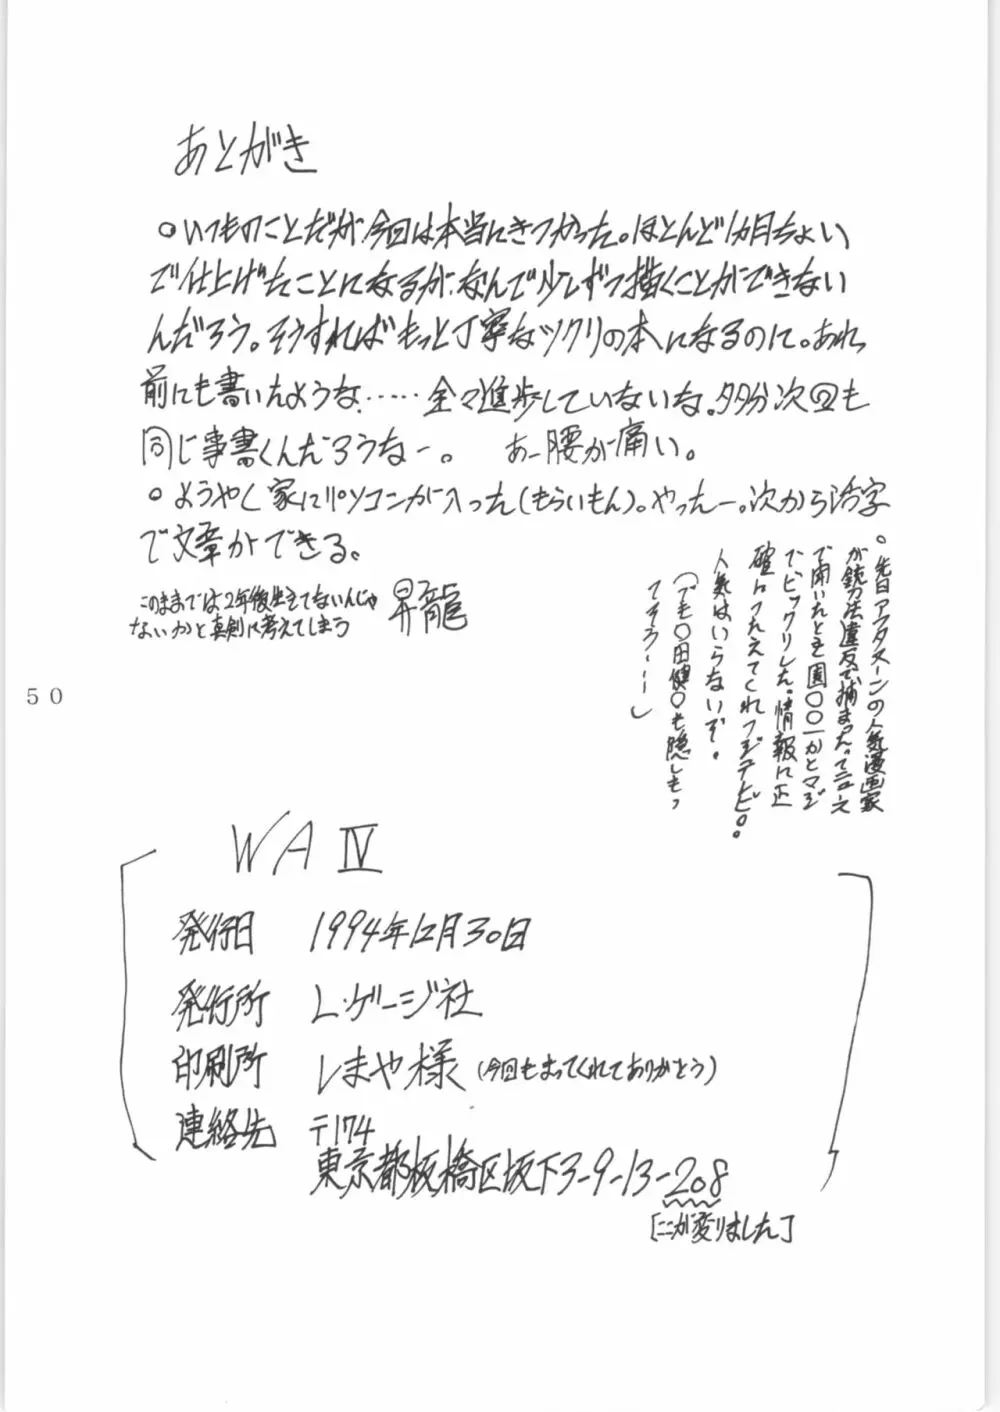 あとがき
○いつものことだが今回は本当にきつかった。ほとんど1カ月ちょい
で仕上げたことになるが、なんで少しずつ描くことができない
んだろう。そうすればもっと丁寧なツクリの本になるのに。あれ
前にも書いたような……全々進歩していないな。多分次回も
同じ事書くんだろうなー。 あー腰が痛い。
○ようやく家にパソコンが入った(もらいもん)。やったー。次から活字
で文章ができる。
このままでは2年後生きてないんじゃ
ないかと真剣に考えてしまう
昇龍
○先日アフタヌーンの人気漫画家
が銃刀法違反で捕まったってニュース
で聞いたとき園○○一かとマジ
でビックリした。情報は正
確につたえてくれフジテレビ。
人気はいらないぞ。
(でも○田健○も隠しもっ
てそう---)
50
WA Ⅳ
発行日 1994年12月30日
発行所 L・ゲージ社
印刷所 しまや様 (今回もまってくれてありがとう)
連絡先 〒174
東京都板橋区坂下3-9-13-208
[ここが変りました]